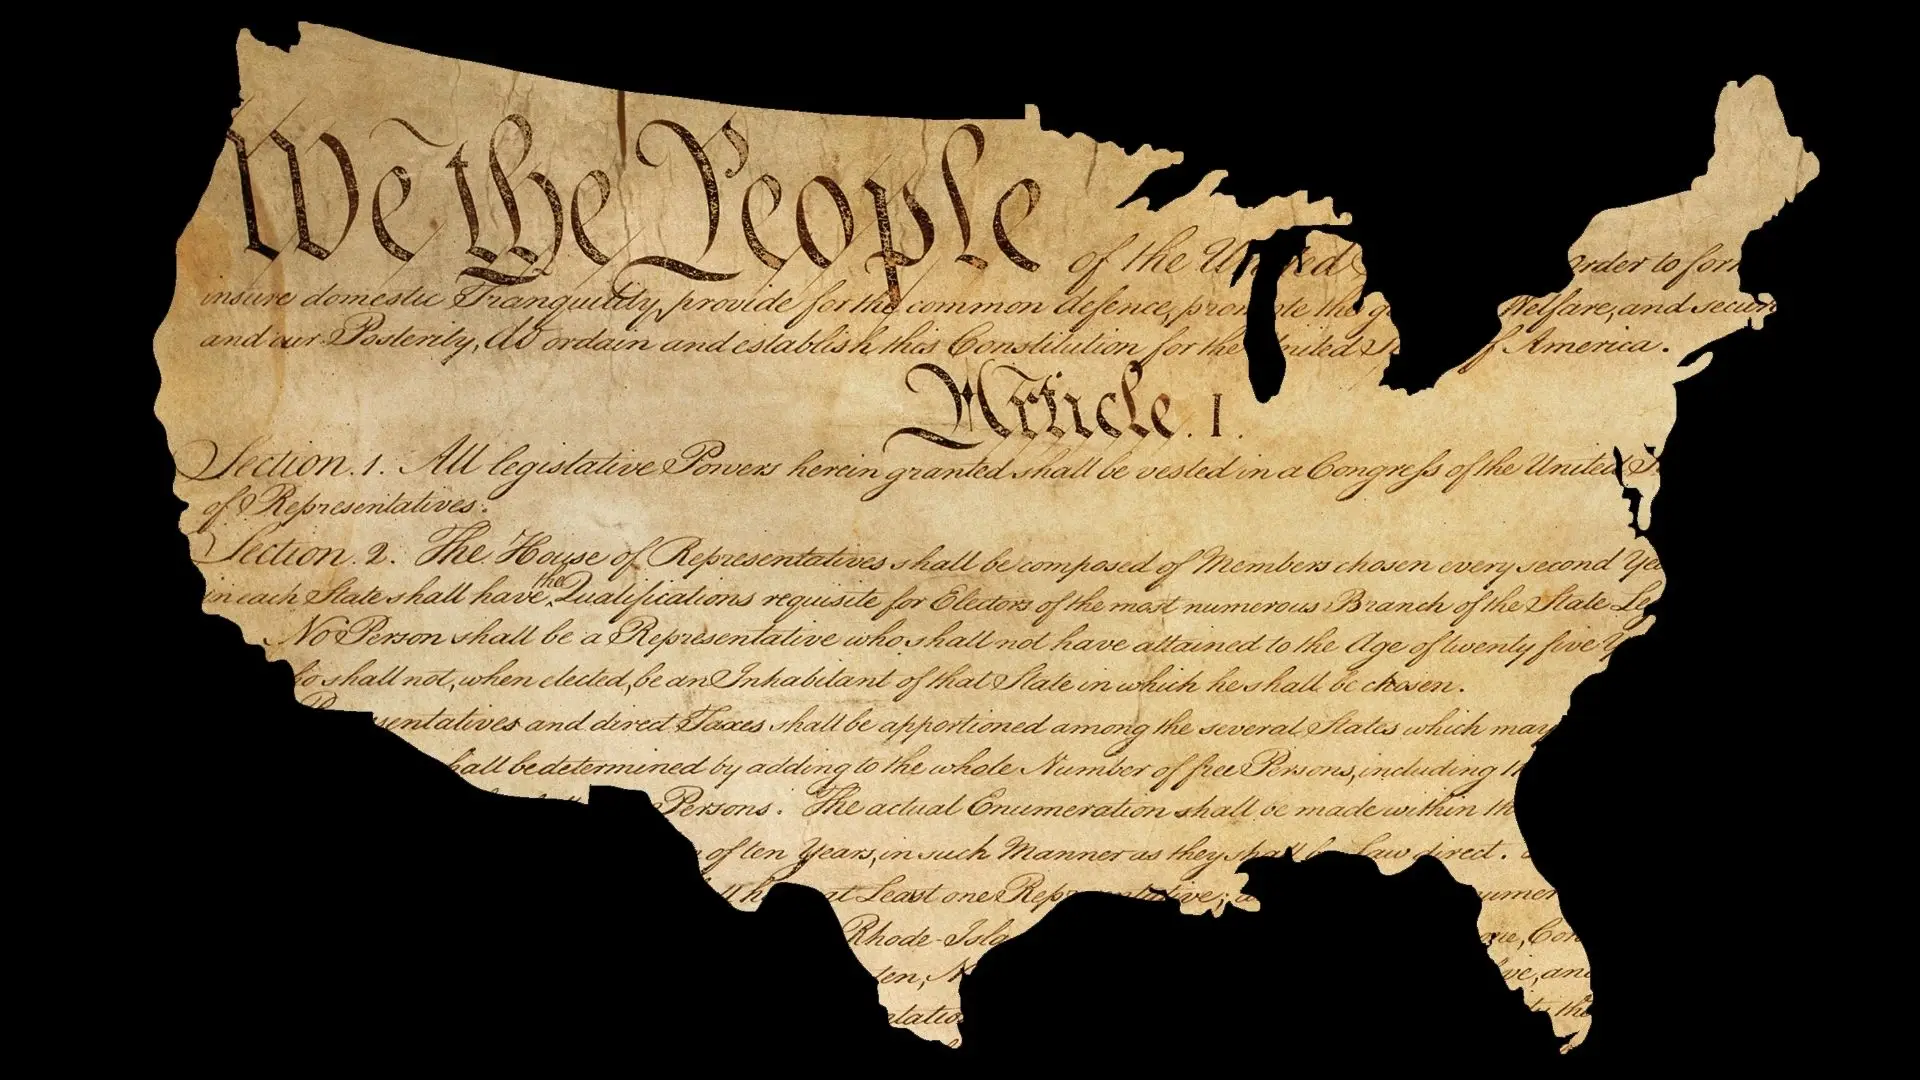 We the People of the United order to form
insure domestic Tranquility, provide for the common defence, promote the Welfare, and secure
and our Posterity, do ordain and establish this Constitution for the United of America.
Article. I.
Section. 1. All legislative Powers herein granted shall be vested in a Congress of the United
of Representatives.
Section. 2. The House of Representatives shall be composed of Members chosen every second
in each State shall have the Qualifications requisite for Electors of the most numerous Branch of the State
No Person shall be a Representative who shall not have attained to the Age of twenty five
shall not, when elected, be an Inhabitant of that State in which he shall be chosen.
and direct Taxes shall be apportioned among the several States which may
be determined by adding to the whole Number of free Persons, including
Persons. The actual Enumeration shall be made within
of ten Years, in such Manner as they shall Law direct.
Least one
Rhode-Isla